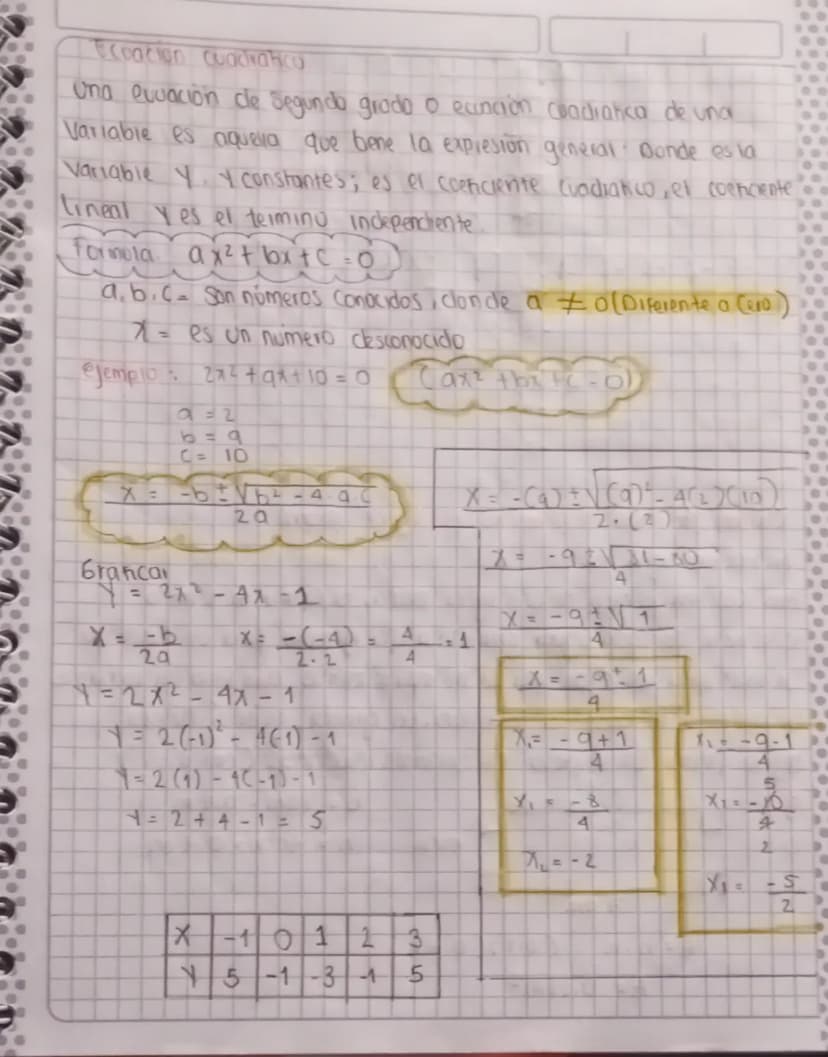 Ecuación cuadratica
Una ecuación de segundo grado o ecuación cuadratica de una
variable es aquella que tiene la expresión general: Donde es la
variable y, y constantes; es el coeficiente cuadratico, el coeficiente
lineal y es el termino independiente
Formula ax² + bx + c = 0
a, b, c = Son números conocidos, donde a ≠ 0 (Diferente a Cero)
x = es un número desconocido
ejemplo: 2x² + 9x + 10 = 0 (ax² + bx + c = 0)
a = 2
b = 9
c = 10
x = -b ± √b² - 4·a·c / 2a
x = -(9) ± √(9)² - 4(2)(10) / 2·(2)
x = -9 ± √81 - 80 / 4
x = -9 ± √1 / 4
x = -9 ± 1 / 4
x₁ = -9 + 1 / 4
x₁ = -8 / 4
x₂ = -2
x₁ = -9 - 1 / 4
5
x₁ = -10 / 4
2
x₁ = -5 / 2
Graficar
Y = 2x² - 4x - 1
x = -b / 2a x = -(-4) / 2·2 = 4 / 4 = 1
Y = 2x² - 4x - 1
Y = 2(-1)² - 4(-1) - 1
Y = 2(1) - 4(-1) - 1
Y = 2 + 4 - 1 = 5
X -1 0 1 2 3
Y 5 -1 -3 -1 5